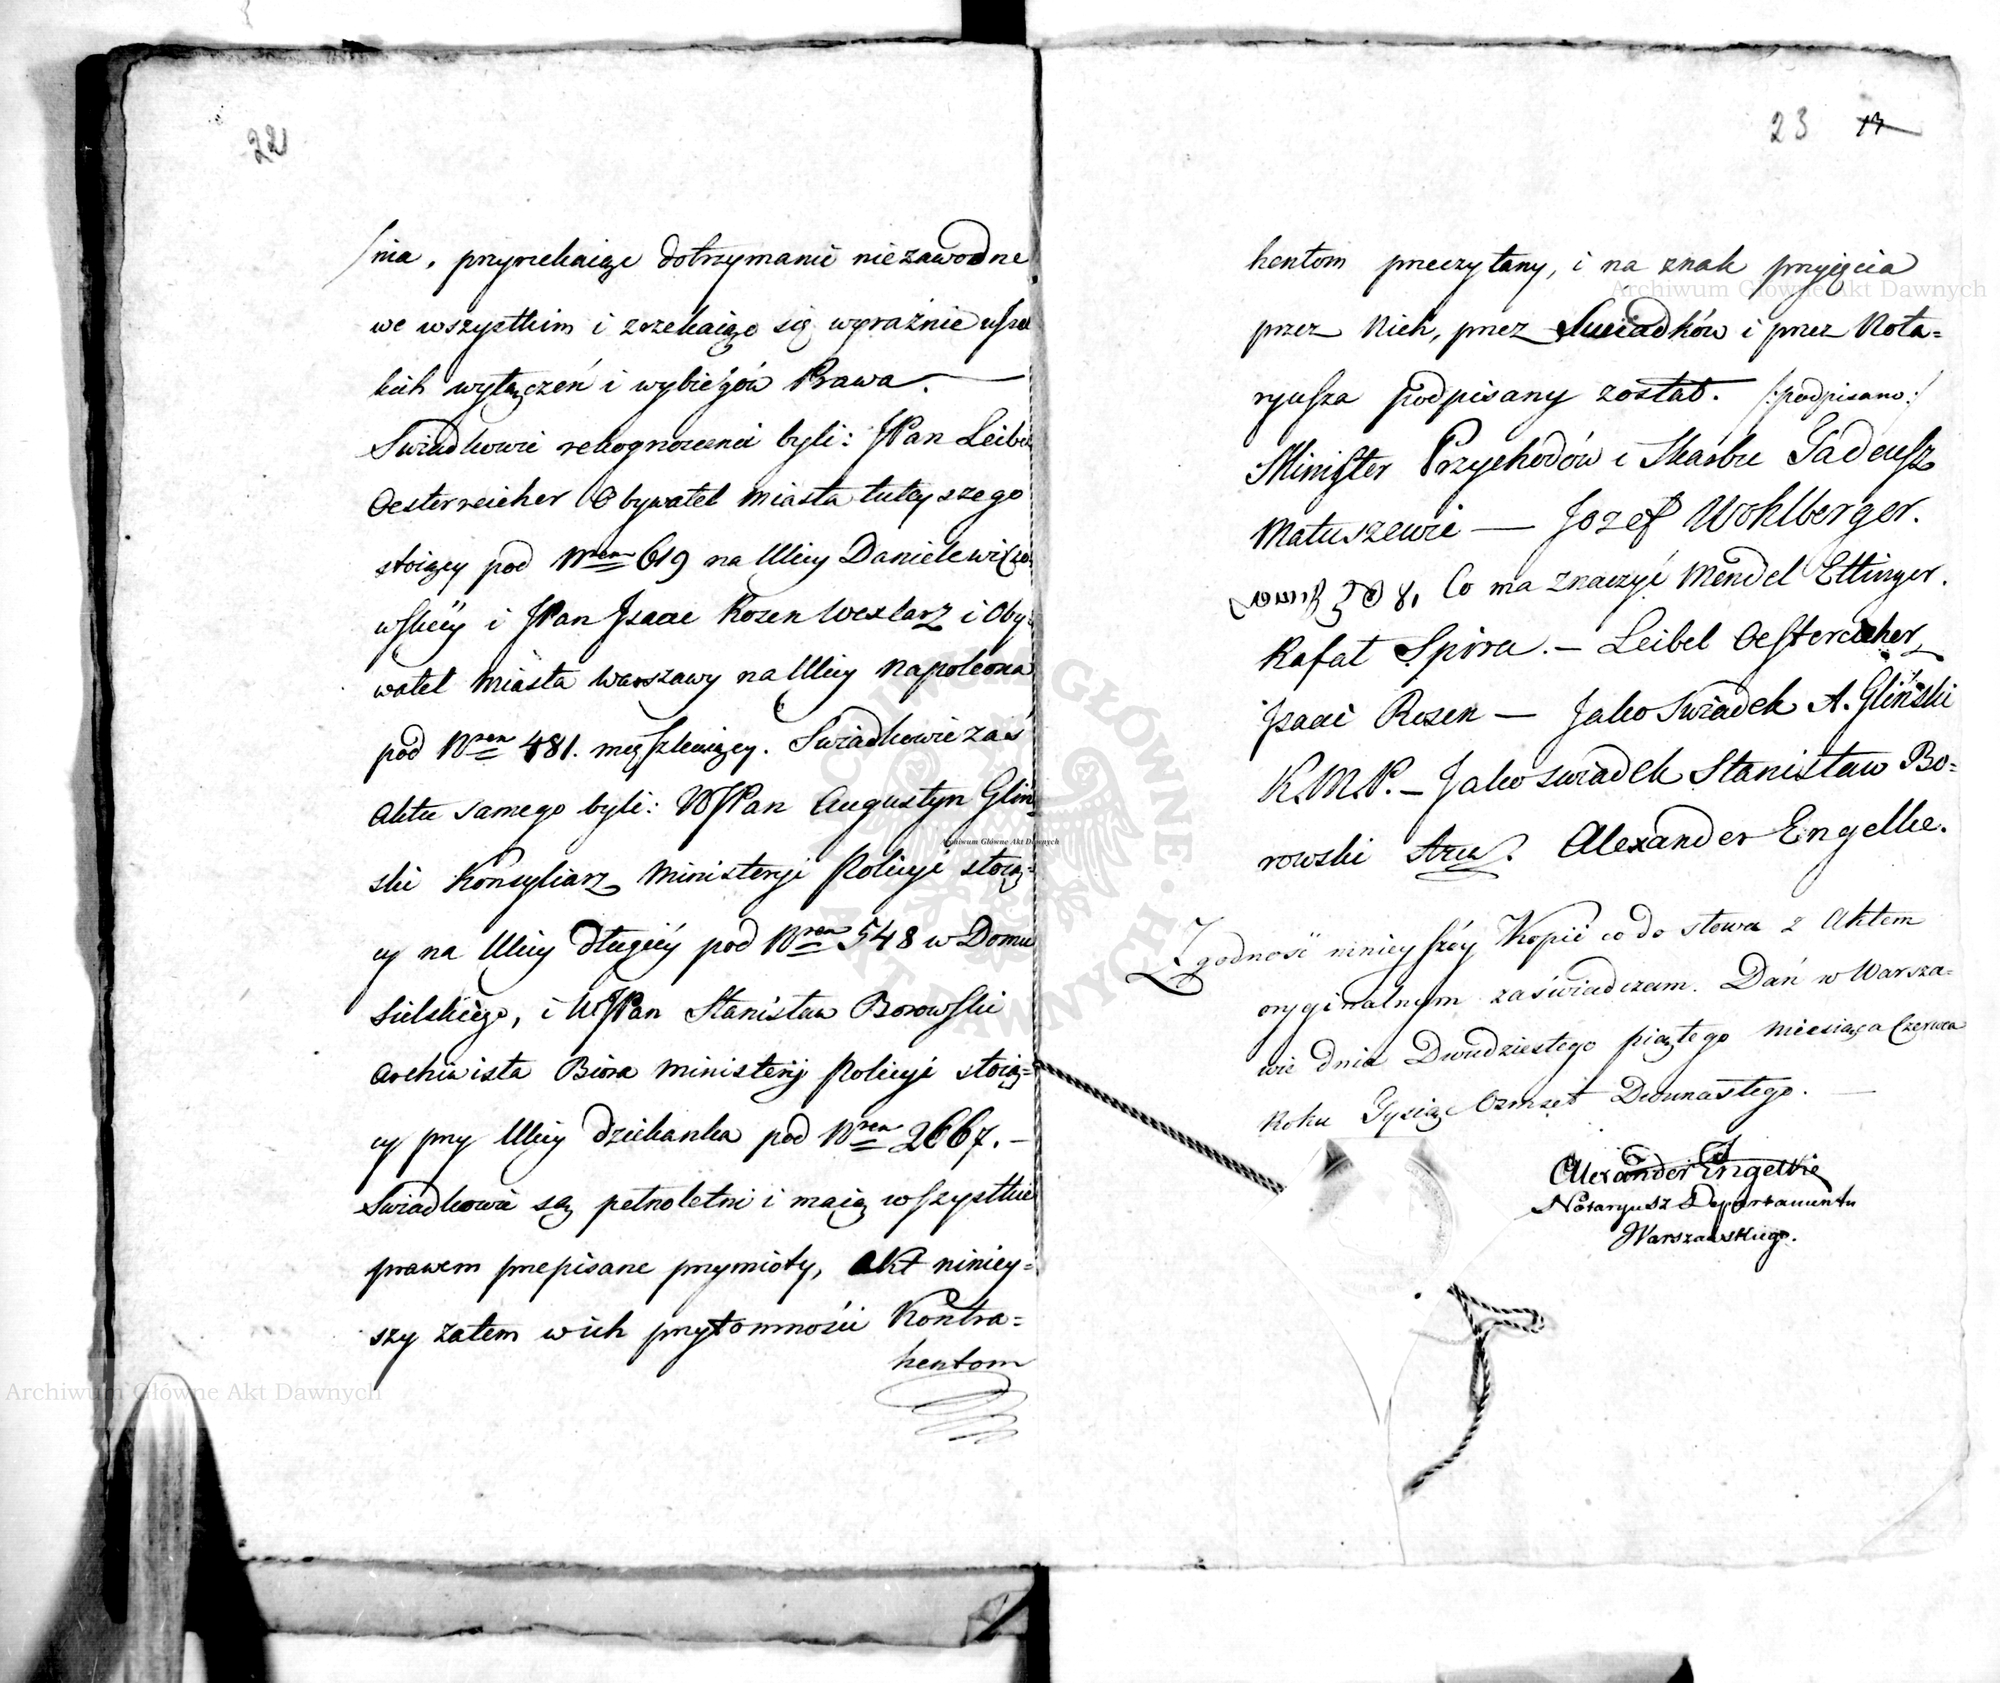 22
nia, przyrzekaiąc dotrzymanie niezawodne
we wszystkim i zrzekaiąc się wyraźnie wszel
kich wyłączeń i wybiegów Prawa.
Swiadkowie rekognocencii byli: JPan Leibel
Oesterreicher Obywatel miasta tuteyszego
stoiący pod Nrem 619 na Ulicy Danielewiczo
wskiey i JPan Isaac Rosen Wexlarz i Oby-
watel miasta Warszawy na Ulicy Napoleona
pod Nrem 481. mieszkaiący. Swiadkowie zaś
Aktu samego byli: WJPan Augustyn Gliń-
ski Konsyliarz Ministeryi Policyi stoią-
cy na Ulicy Długiey pod Nrem 548 w Domu
Sielskiego, i WJPan Stanisław Borowski
Archiwista Biora Ministeryi Policyi stoią-
cy przy Ulicy Dziekanka pod Nrem 2667. –
Swiadkowie są pełnoletni i maią wszystkie
prawem przepisane przymioty, Akt niniey-
szy zatem w ich przytomności Kontra-
hentom
23 17
hentom przeczytany, i na znak przyięcia
przez Nich, przez Swiadków i przez Nota-
ryusza podpisany został. /:podpisano:/
Minister Przychodów i Skarbu Tadeusz
Matuszewic — Jozef Wohlberger.
Co ma znaczyć Mendel Ettinger.
Rafał Spira. – Leibel Oestereicher
Isaac Rosen — Jako Swiadek A. Gliński
K.M.P. – Jako swiadek Stanisław Bo-
rowski Alexander Engelke.
Zgodność ninieyszéy Kopii co do słowa z Aktem
oryginalnym zaświadczam. Dań w Warsza-
wie dnia Dwudziestego piątego Miesiąca Czerwca
Roku Tysiąc Ośmset Dwunastego. —
Alexander Engelke
Notaryusz Departamentu
Warszawskiego.
Archiwum Główne Akt Dawnych
Archiwum Główne Akt Dawnych
Archiwum Główne Akt Dawnych
ARCHIWUM GŁÓWNE AKT DAWNYCH